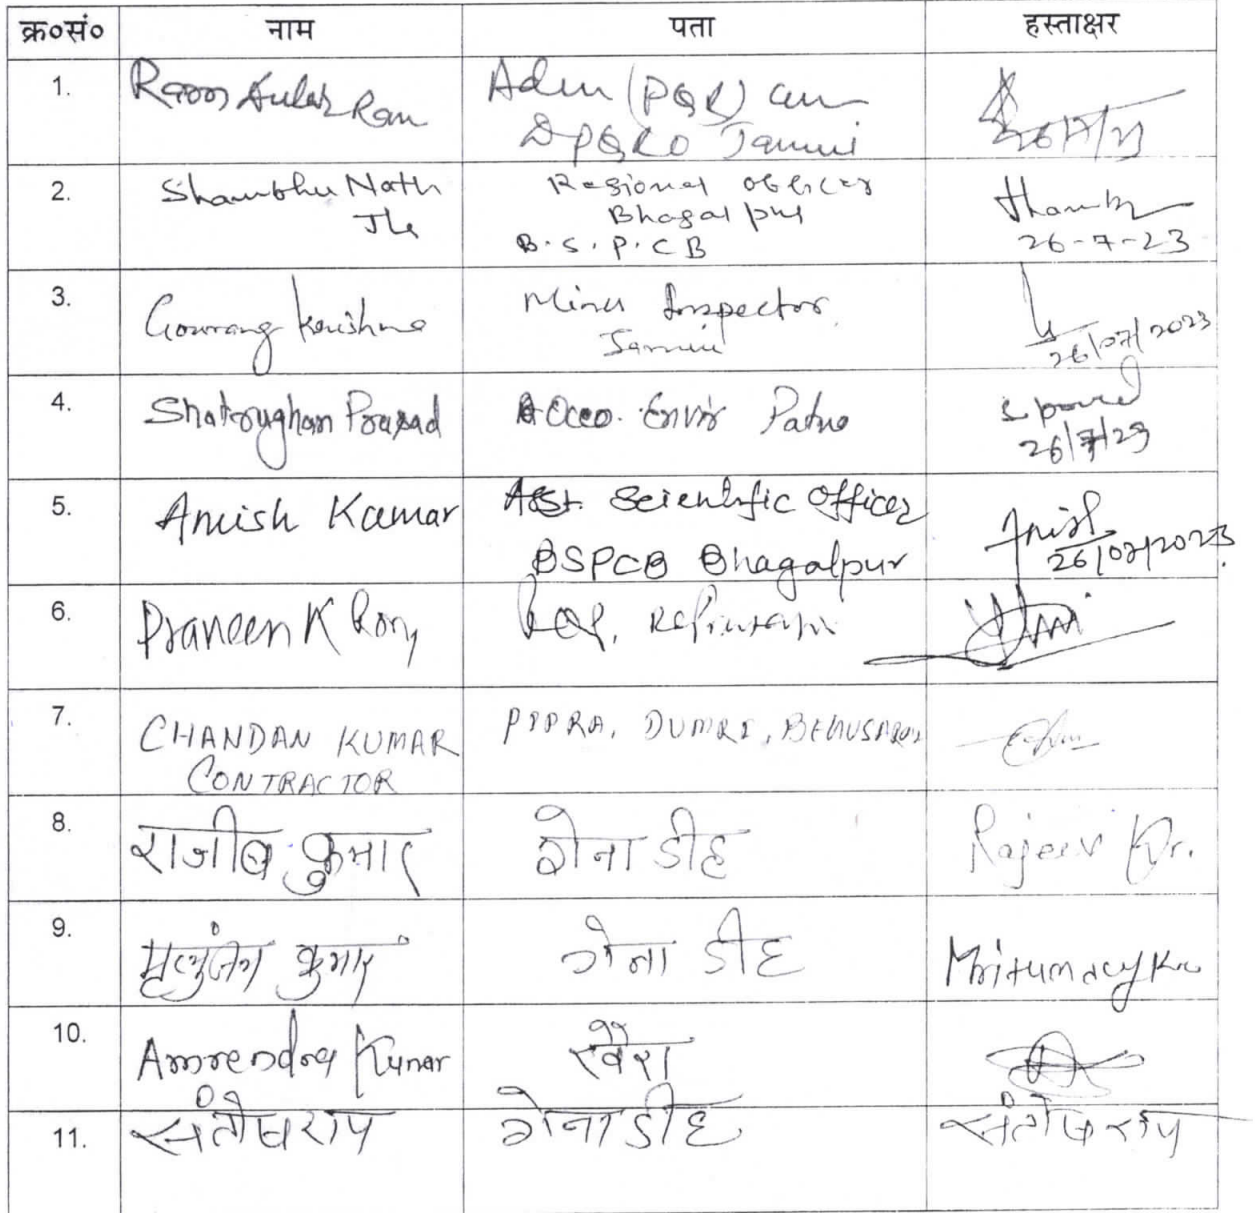 क्र०सं० नाम पता हस्ताक्षर
1. Ram Ram Adm (PGR) cum
DPGRO Jamui
26/7/23
2. Shambhu Nath Regional Officer
Jha Bhagalpur
B.S.P.C.B 26-7-23
3. Gourang Krishna Mines Inspector
Jamui 26/07/2023
4. Shatrughan Prasad Envir Patna
26/7/23
5. Amish Kumar Asst. Scientific Officer
BSPCB Bhagalpur 26/07/2023
6. Praveen K
7. CHANDAN KUMAR PIPRA, DUMRI, BEGUSARAI
CONTRACTOR
8. राजीव कुमार गेनाडीह Rajeev Kr.
9. मृत्युंजय कुमार गेनाडीह Mritunacy Kr
10. Amrendra Kumar खैरा
11. संतोष राय गेनाडीह संतोष राय